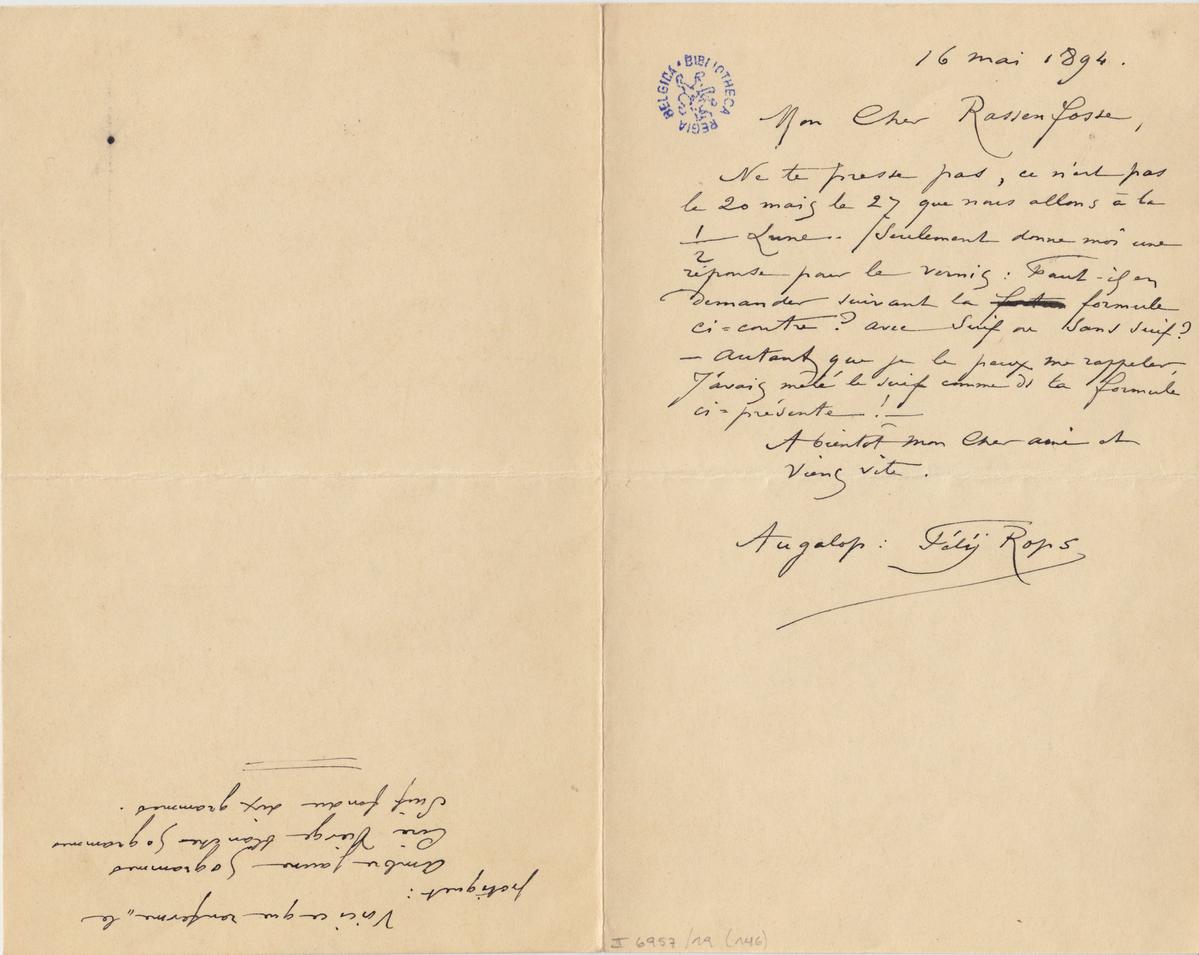 16 mai 1894.
BIBLIOTHECA REGIA BELGICA
Mon Cher Rassenfosse,
Ne te presse pas, ce n'est pas
le 20 mais le 27 que nous allons à la
1/2 Lune. Seulement donne moi une
réponse pour le vernis : Faut-il en
demander suivant la formule
ci=contre ? avec Suif ou Sans suif ?
— Autant que je le peux me rappeler,
J'avais mêlé le suif comme ds ta formule
ci=présente ! —
A bientôt mon Cher ami et
Viens vite.
Au galop : Fély Rops
II 6957/19 (146)
Voici ce que renferme „ le
petiguet :
Ambre jaune 50 grammes
Cire Vierge blanche 50 grammes
Suif fondu dix grammes.